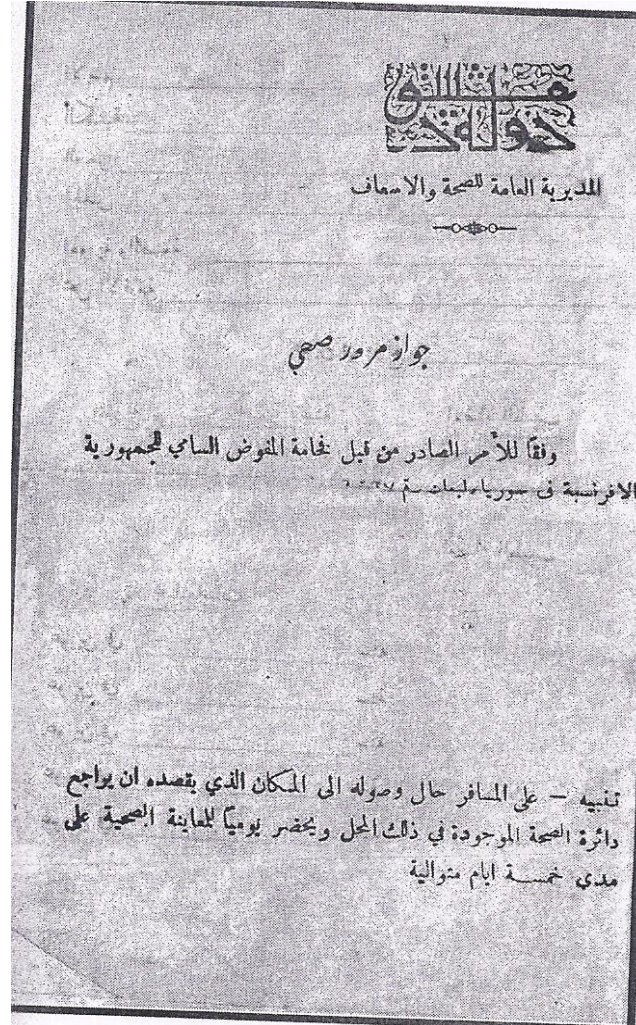 دولة دمشق
المديرية العامة للصحة والاسعاف
جواز مرور صحي
وفقاً للأمر الصادر من قبل فخامة المفوض السامي للجمهورية
الافرنسية في سوريا ولبنان
تنبيه — على المسافر حال وصوله الى المكان الذي يقصده ان يراجع
دائرة الصحة الموجودة في ذلك المحل ويحضر يومياً للمعاينة الصحية على
مدى خمسة ايام متوالية